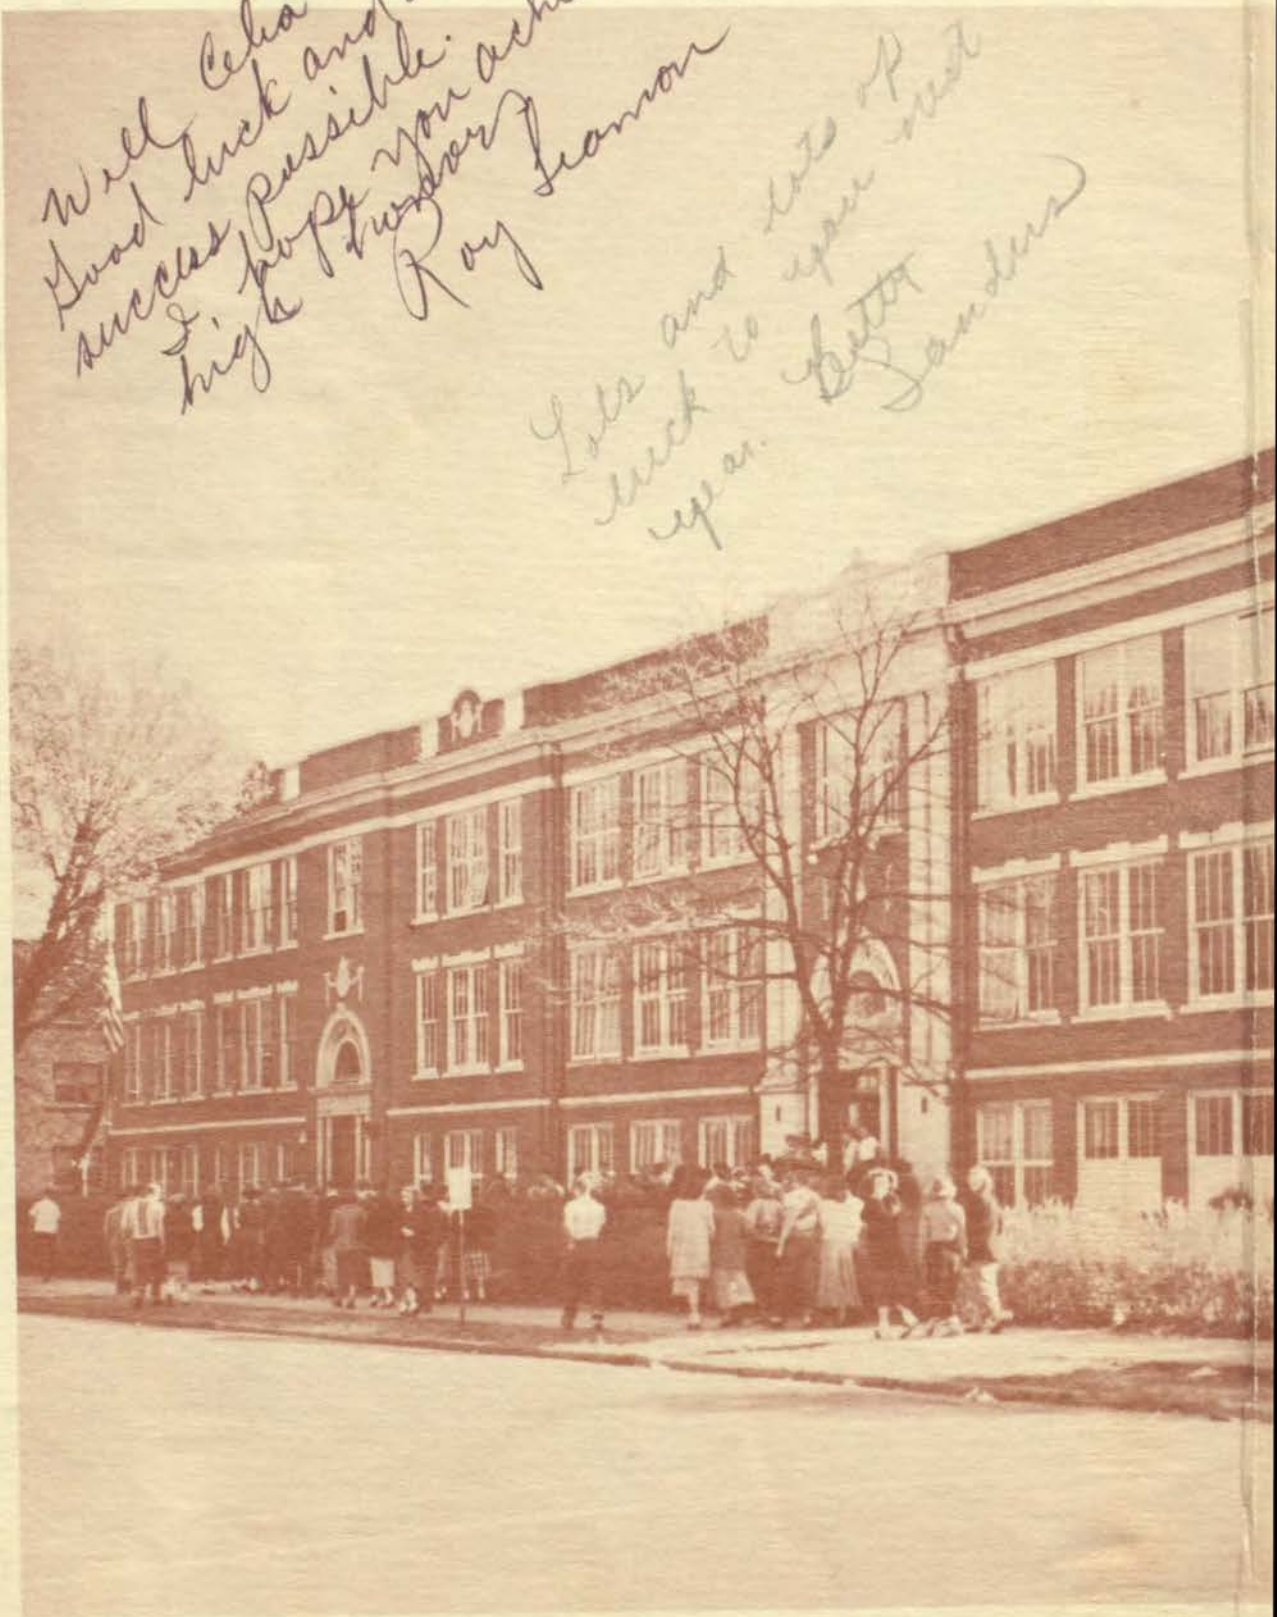 Well Celia
Good luck and
success possible.
I hope you
high
Roy
Lots and lots of
luck to your next
year. Betty
Sanders